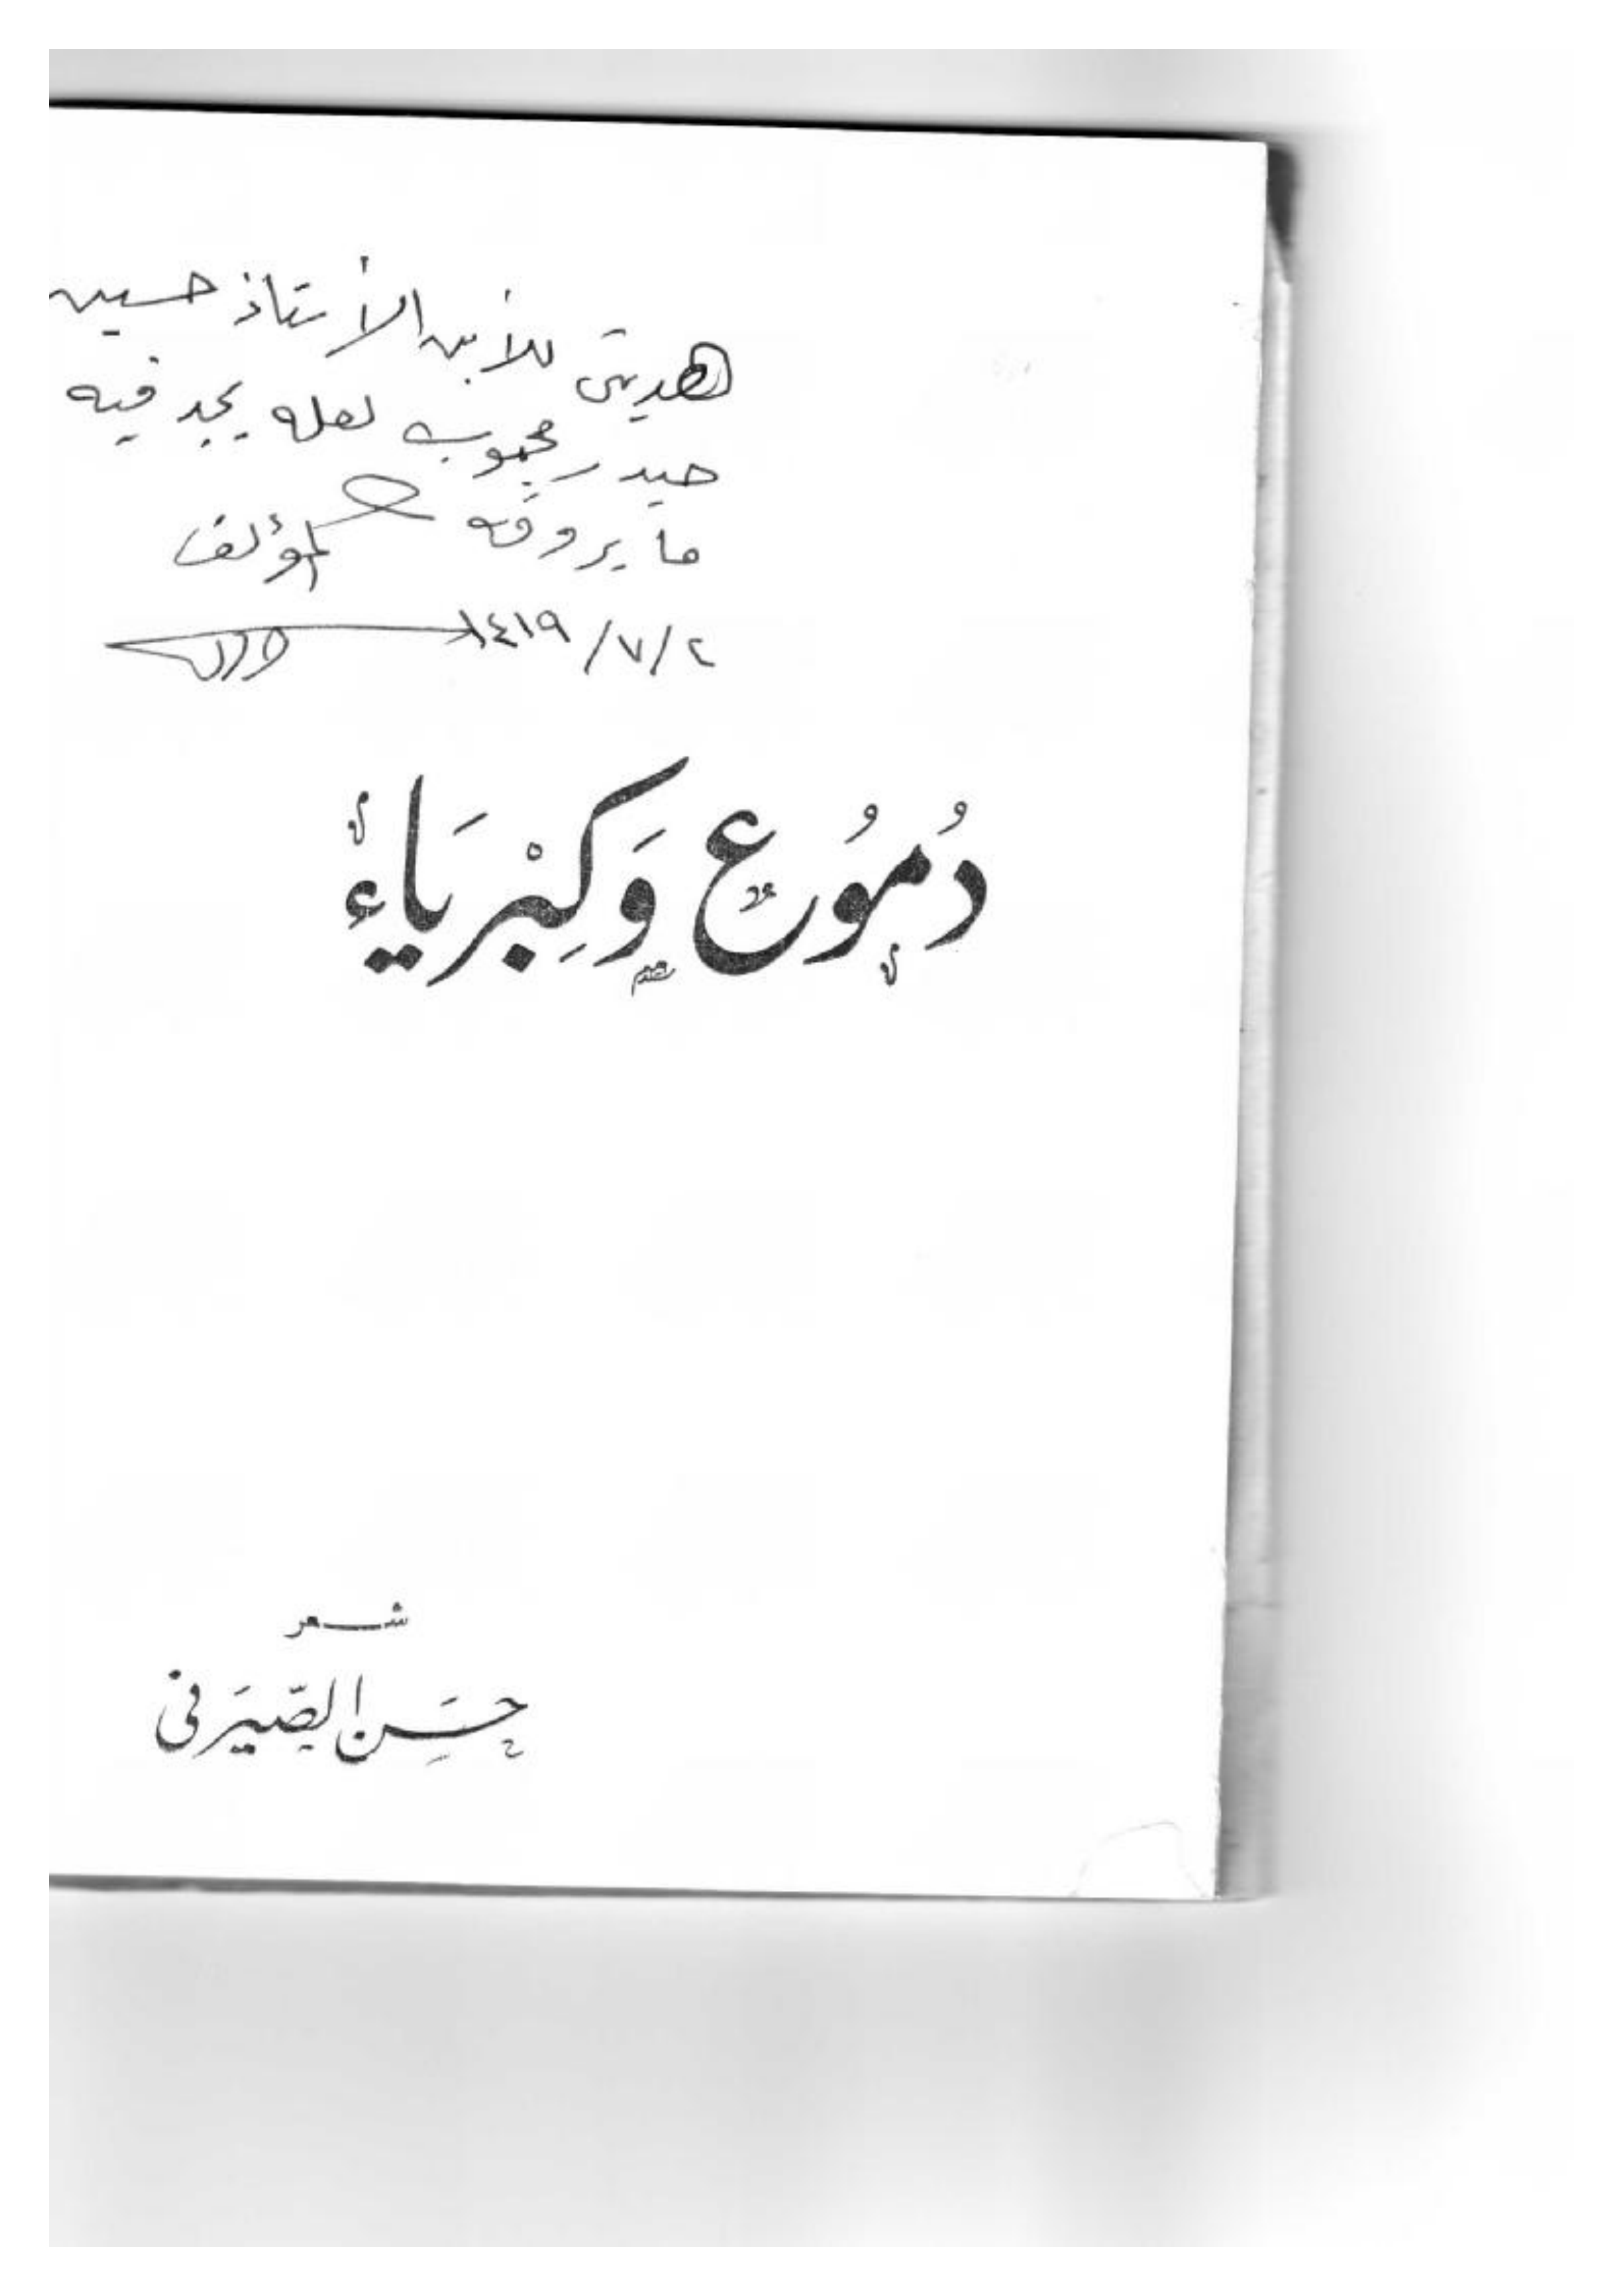 هديتي للابن الأستاذ حسين
حيدر محبوب لعله يجد فيه
ما يروقه المؤلف
١٤١٩/٧/٢
دُمُوع وَكِبْرِيَاءْ
شعر
حَسَن الصَّيرَفي